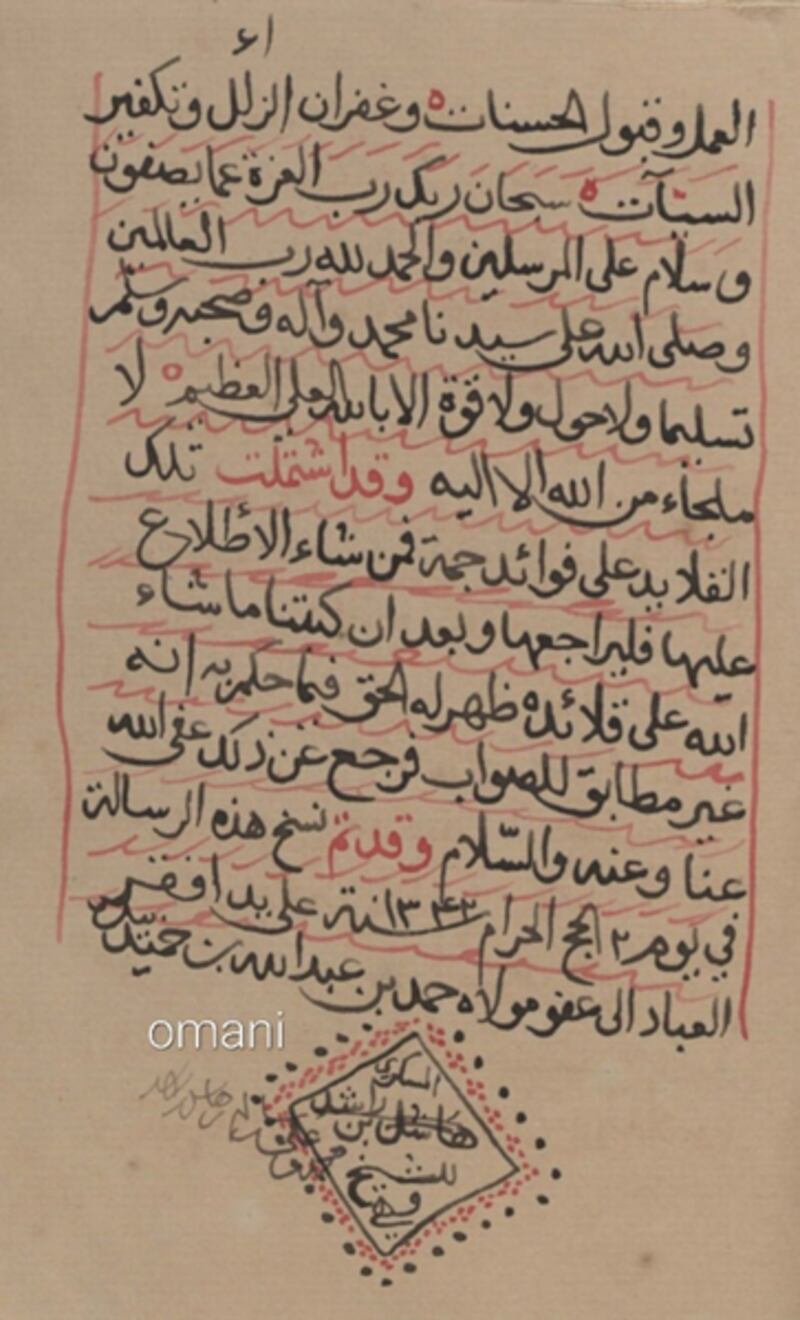 العمل وقبول الحسنات ه وغفران الزلل وتكفير
السيئآت ه سبحان ربك رب العزة عما يصفون
وسلام على المرسلين والحمد لله رب العالمين
وصلى الله على سيدنا محمد وآله وصحبه وسلم
تسليما ولا حول ولا قوة الا بالله العلي العظيم ه لا
ملجاء من الله الا اليه وقد اشتملت تلك
القلايد على فوائد جمة فمن شاء الأطلاع
عليها فليراجعها وبعد ان كتبنا ما شاء
الله على قلائده ظهر له الحق فيما حكم به انه
غير مطابق للصواب فرجع عن ذلك عفى الله
عنا وعنه والسّلام وقد تم نسخ هذه الرسالة
في يوم ٢ الحج الحرام سنة ١٣٤٣ على يد افقر
العباد الى عفو مولاه حمد بن عبدالله بن حميد
omani
للشيخ
هاشل بن راشد
المسكري